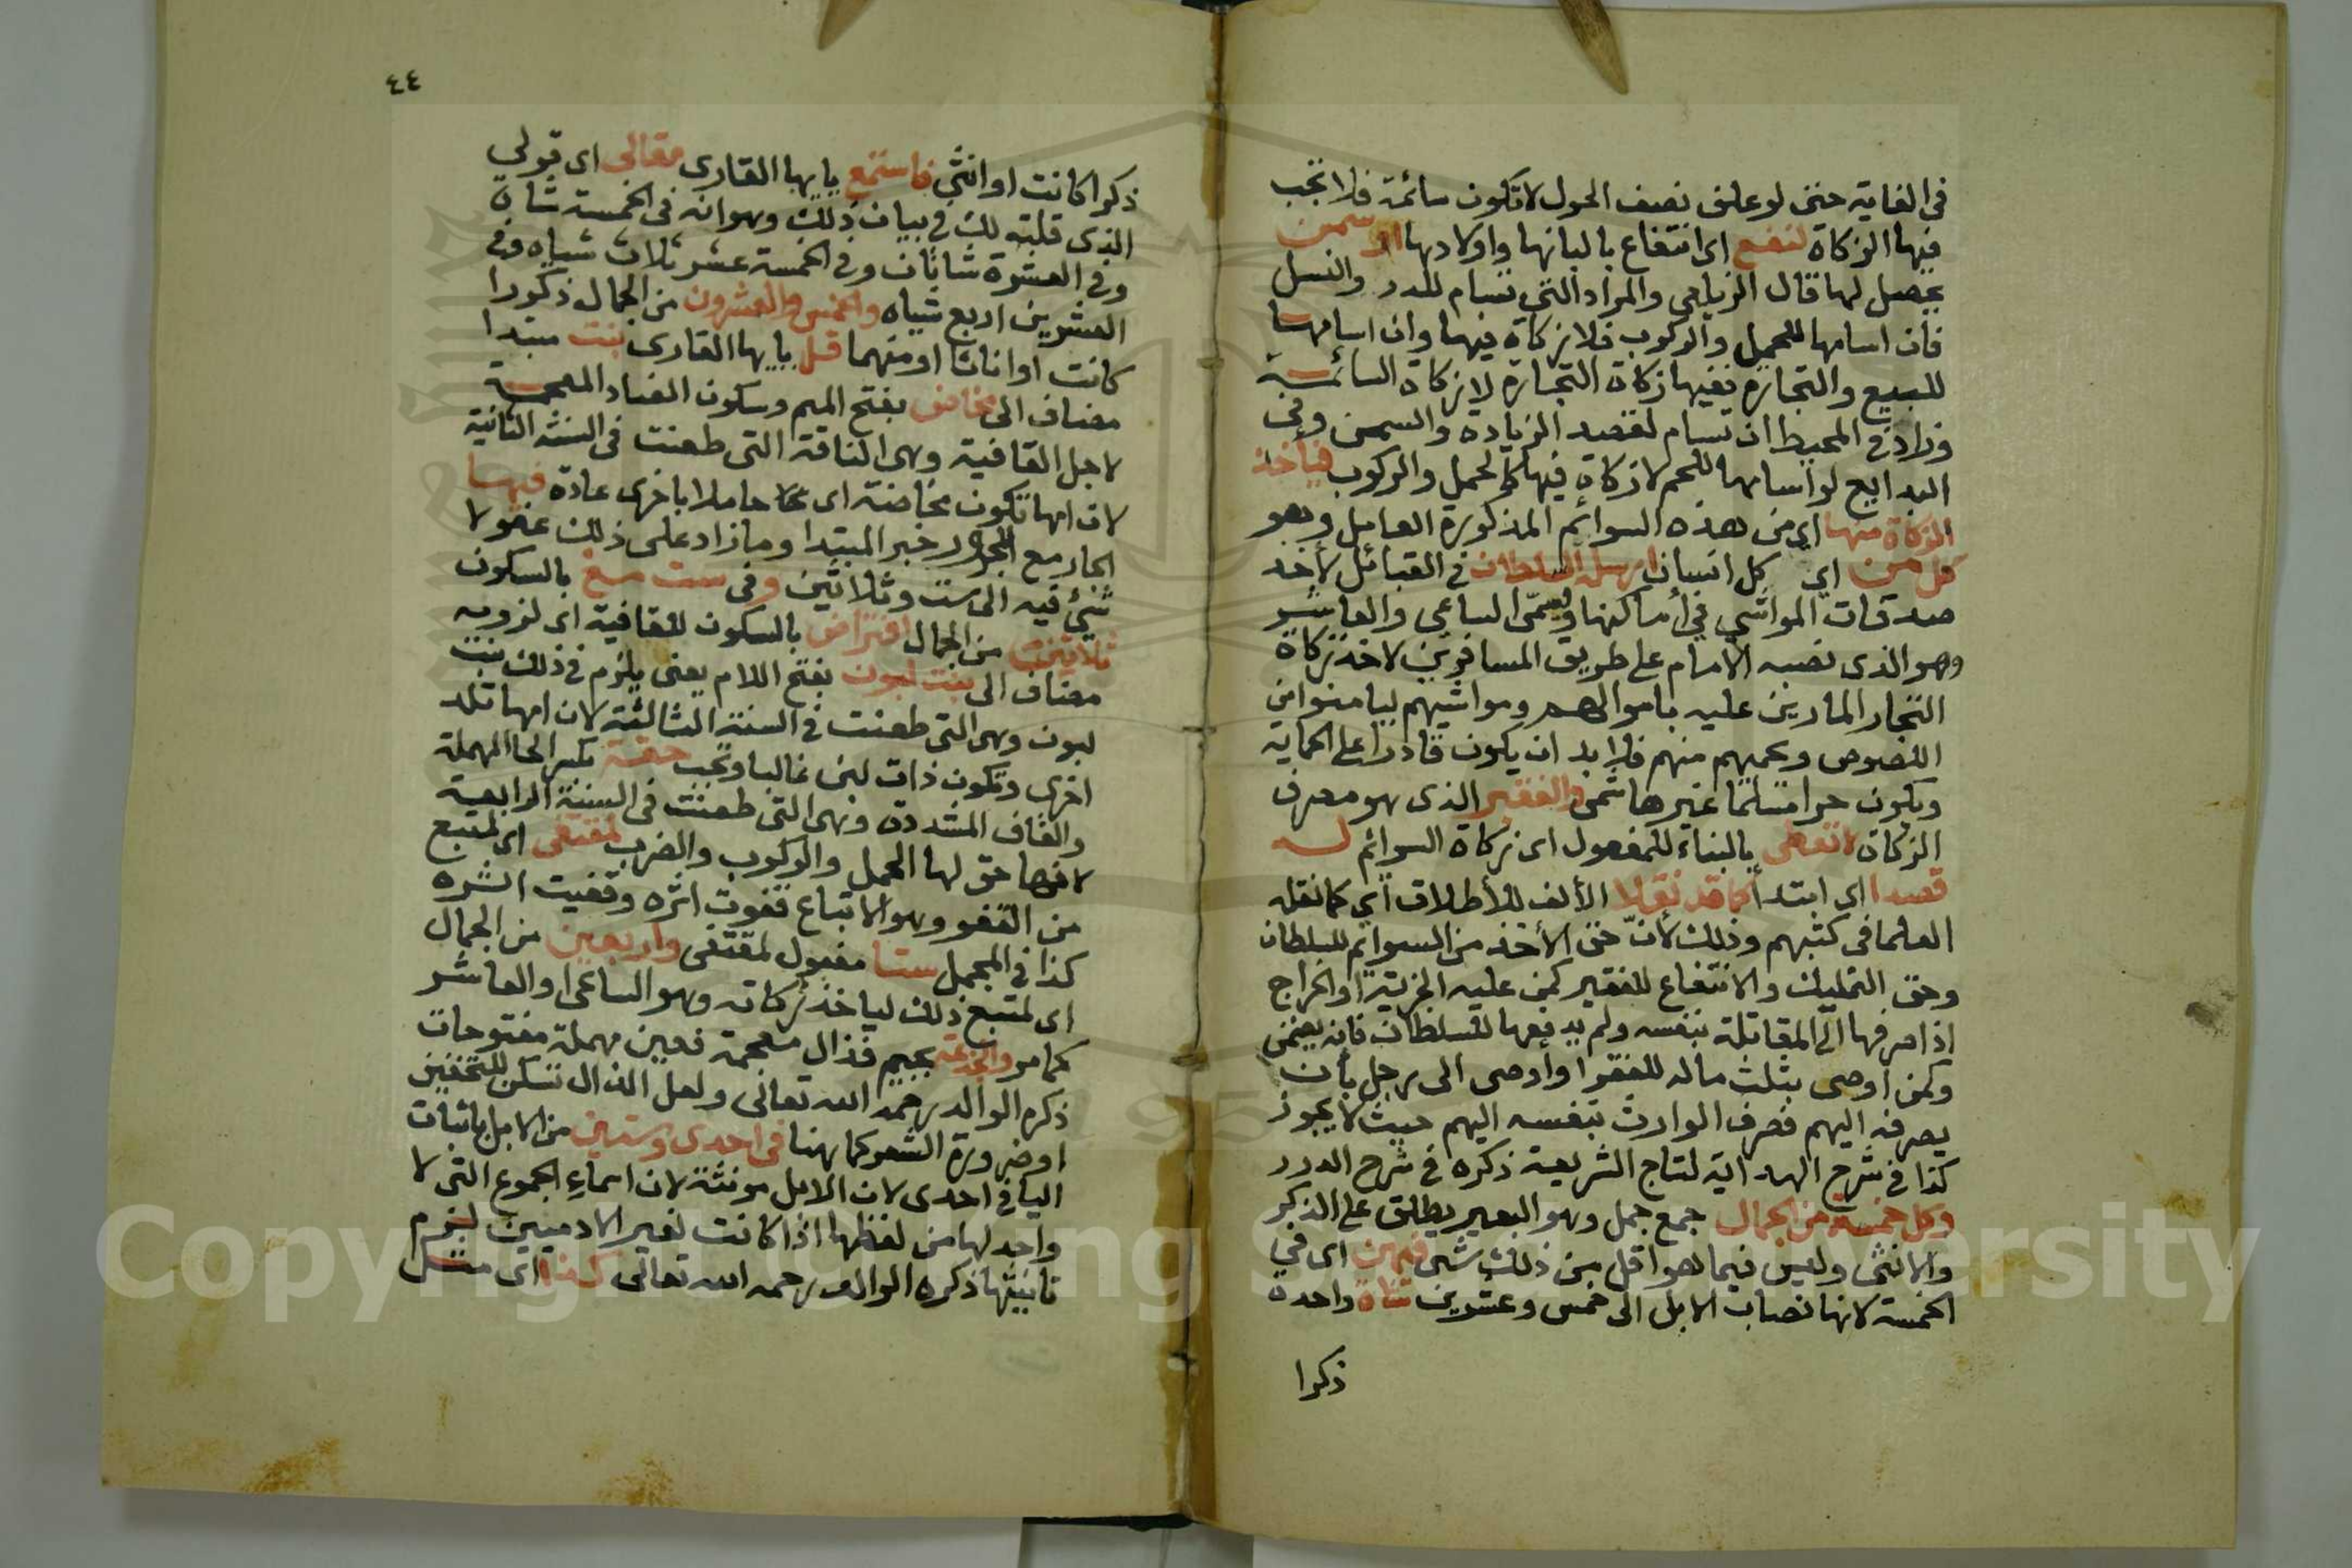 في الغاية حتى لو علف نصف الحول لا تكون سائمة فلا تجب
فيها الزكاة لنفع اى انتفاع بالبانها واولادها او سمن
يحصل لها قال الزيلعي والمراد التي تسام للدر والنسل
فان اسامها للحمل والركوب فلا زكاة فيها وان اسامها
للبيع والتجارة ففيها زكاة التجارة لا زكاة السائمة
وزاد في المحيط ان تسام لقصد الزيادة والسمن وفى
البدايع لو اسامها للحم لا زكاة فيها كالحمل والركوب فيأخذ
الزكاة منها اى من هذه السوائم المذكورة العامل وهو
كل من اي كل انسان ارسله السلطان في القبائل لأخذ
صدقات المواشي في أماكنها ويسمى الساعي والعاشر
وهو الذى نصبه الامام على طريق المسافرين لاخذ زكاة
التجار المارين عليه باموالهم ومواشيهم ليامنوا من
اللصوص ويحميهم منهم فلا بد ان يكون قادرا على الحماية
ويكون حرا مسلما غير هاشمى والفقير الذى هو مصرف
الزكاة لا تعطى بالبناء للمفعول اى زكاة السوائم له
قصدا اى ابتدا كما قد نقلا الألف للأطلاق أي كما نقله
العلما فى كتبهم وذلك لأنّ حق الأخذ من السوائم للسلطان
وحق التمليك والانتفاع للفقير كمن عليه الجزية او الخراج
اذا صرفها الى المقاتلة بنفسه ولم يدفعها للسلطان فانه يضمن
وكمن اوصى بثلث ماله للفقرا وأوصى الى رجل بأن
يصرفه اليهم فصرف الوارث بنفسه اليهم حيث لا يجوز
كذا في شرح الهداية لتاج الشريعة ذكره في شرح الدرر
وكل خمسة من الجمال جمع جمل وهو البعير يطلق على الذكر
والانثى وليس فيما هو اقل من ذلك شى فهن اى في
الخمسة لانها نصاب الابل الى خمس وعشرين شاة واحدة
ذكرا
٤٤
ذكرا كانت او انثى فاستمع يا يها القارى مقالى اى قولي
الذى قلته لك في بيان ذلك وهو انه فى الخمسة شاة
وفى العشرة شاتان وفى الخمسة عشر ثلاث شياه وفى
العشرين اربع شياه والخمس والعشرون من الجمال ذكورا
كانت او اناثا او منهما قل يا يها القارى بنت مبتدا
مضاف الى مخاض بفتح الميم وسكون الضاد المعجمة
لاجل القافية وهى الناقة التى طعنت فى السنة الثانية
لان امها تكون مخاضة اى حاملا باخرى عادة فيها
الجار مع المجرور خبر المبتدا وما زاد على ذلك عفو لا
شئ فيه الى ست وثلاثين وفى ست مع بالسكون
ثلاثين من الجمال افتراض بالسكون للقافية اى لزوم
مضاف الى بنت لبون بفتح اللام يعنى يلزم فى ذلك بنت
لبون وهى التى طعنت في السنة الثالثة لان امها تلد
اخرى وتكون ذات لبن غالبا وتجب حقة بكسر الحا المهملة
والقاف المشددة وهى التى طعنت فى السنة الرابعة
لانها حق لها الحمل والركوب والضرب لمقتفى اى لمتبع
من القفو وهو الاتباع قفوت اثره وقفيت اثره
كذا في المجمل ستا مفعول لمقتفى واربعين من الجمال
اى لمتبع ذلك لياخذ زكاته وهو الساعى او العاشر
كما مر والجذعة بجيم فذال معجمة فعين مهملة مفتوحات
ذكره الوالد رحمه الله تعالى ولعل الذال تسكن للتخفيف
او ضرورة الشعر كما هنا فى احدى وستين من الابل باثبات
اليا فى احدى لان الابل مونثة لان اسماء الجموع التى لا
واحد لها من لفظها اذا كانت لغير الادميين لزم
تانيثها ذكره الوالد رحمه الله تعالى كذا اى مثل